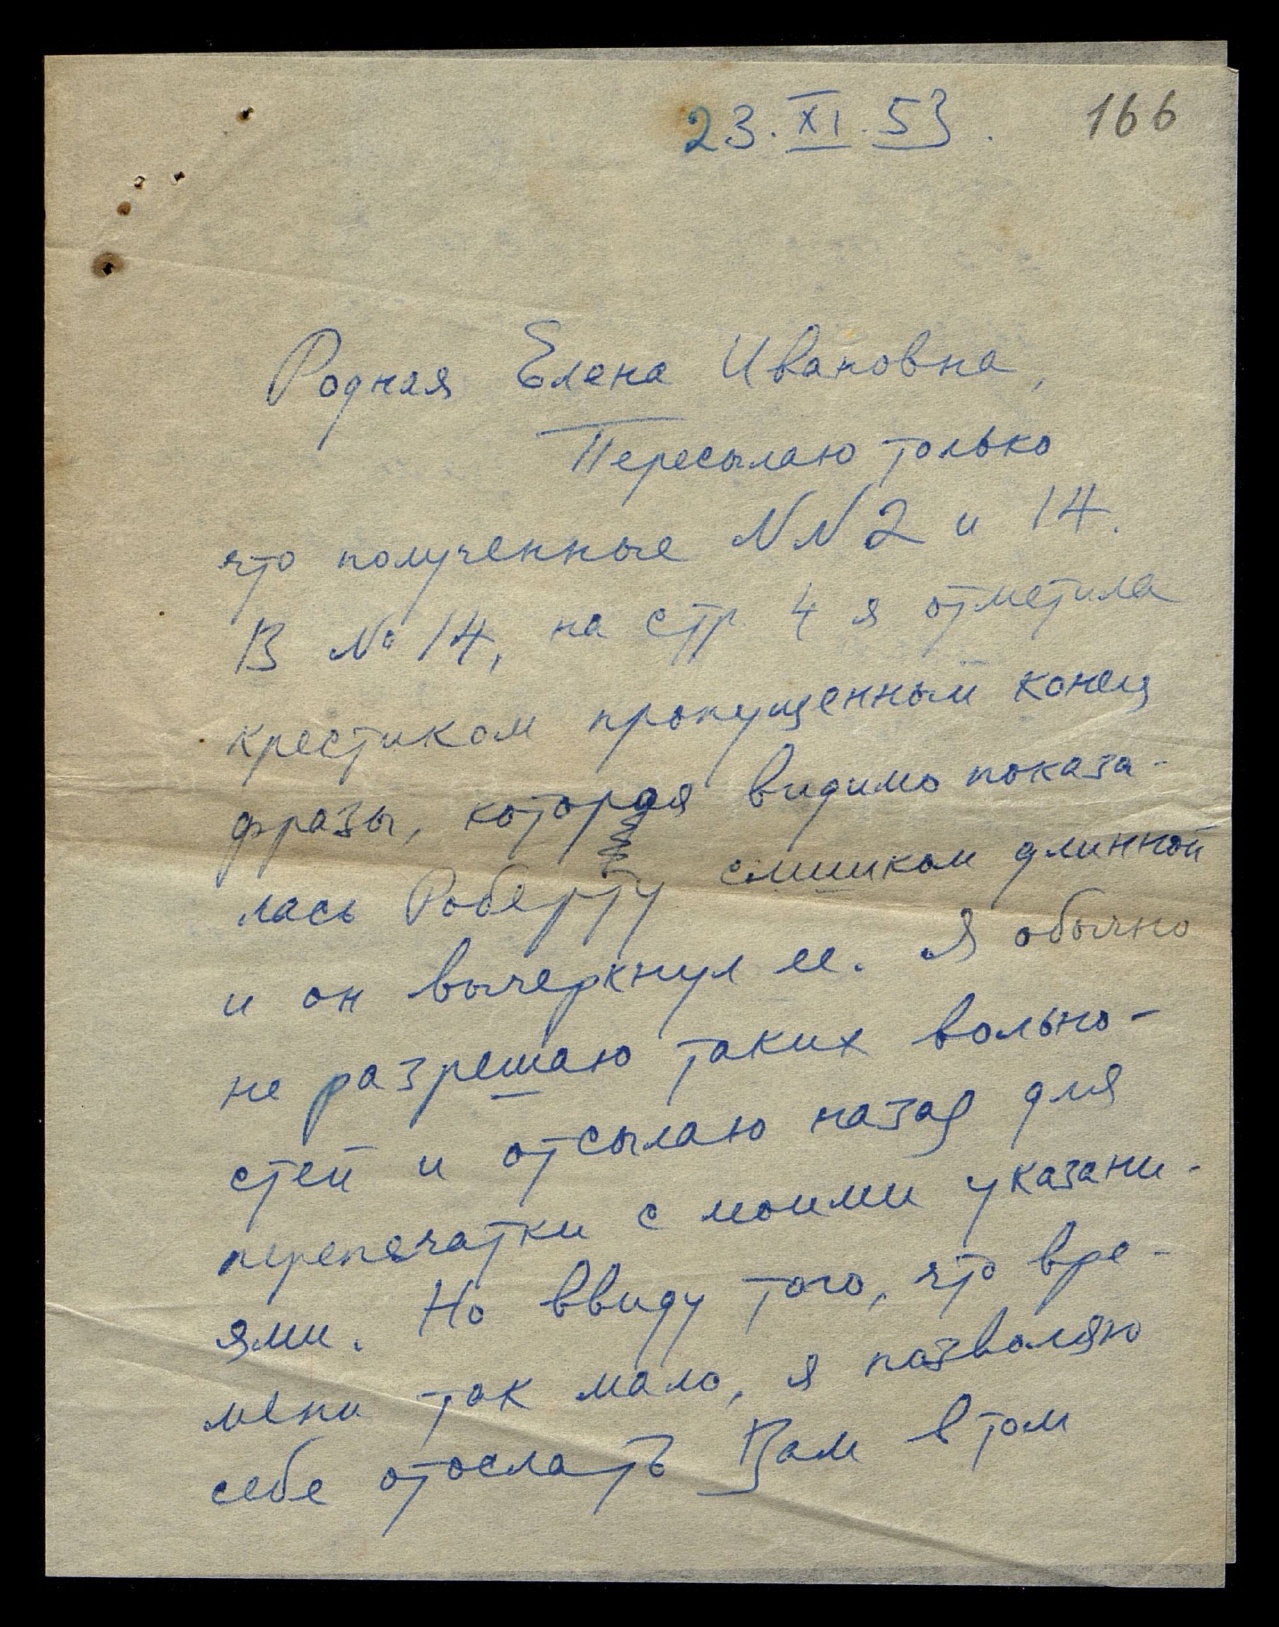 23.XI.53. 166
Родная Елена Ивановна,
Пересылаю только
что полученные NN 2 и 14.
В № 14, на стр. 4 я отметила
крестиком пропущенный конец
фразы, которая видимо показа-
лась Роберту слишком длинной
и он вычеркнул ее. Я обычно
не разрешаю таких вольно-
стей и отсылаю назад для
перепечатки с моими указани-
ями. Но ввиду того, что вре-
мени так мало, я позволяю
себе отослать Вам в том